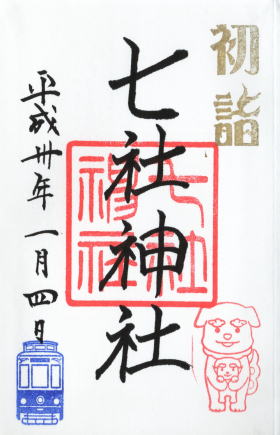 初詣
七社神社
七社神社
平成卅年一月四日